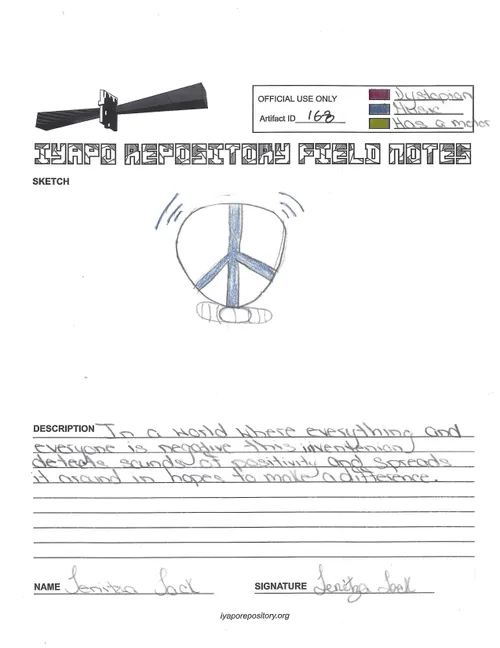 OFFICIAL USE ONLY
Artifact ID 168
Dystopian
Music
Has a motor
IYAPO REPOSITORY FIELD NOTES
SKETCH
DESCRIPTION In a world where everything and
everyone is negative this invention
detects sounds of positivity and spreads
it around in hopes to make a difference.
NAME Jenitza Jack
SIGNATURE Jenitza Jack
iyaporepository.org